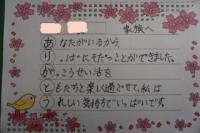 家族へ
あなたがいるから、
りっぱにそだつことができました。
がっこうせい活を
ともだちと楽しく過ごせて、私は
うれしい気持ちでいっぱいです。